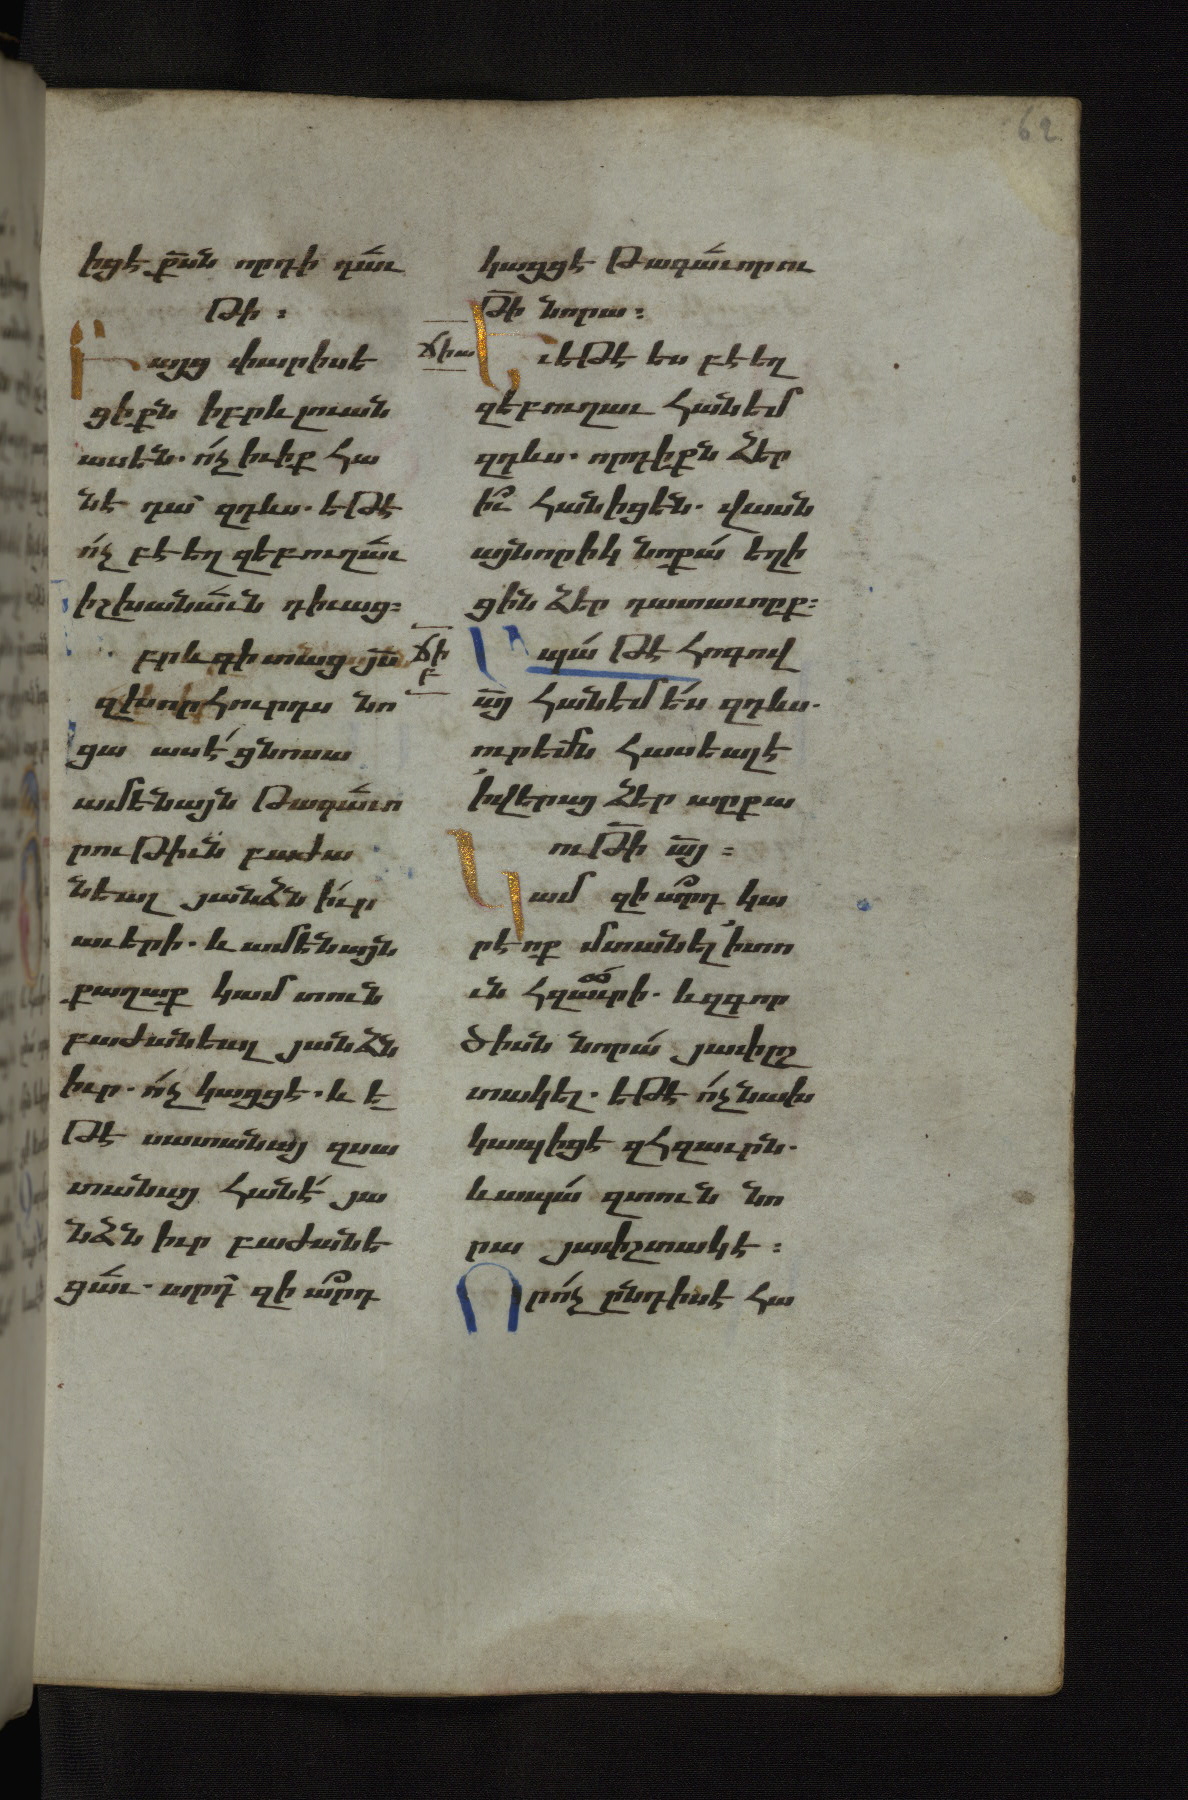 62
իցէ ք̅սն որդի դա՛ւ
թի ։
Իայց փարիսե
ցիքն իբրև լուան
ասէն. ո՛չ իւիք հա
նէ դա՛ զդևս. եթէ
ո՛չ բէեղ զեբուղա՛ւ
իշխանա՛ւն դիւաց։
բրև գիտաց յ̅ս
զխորհուրդս նո
ցա ասէ՛ ցնոսա
ամենայն թագա՛ւո
րութիւն բաժա
նեալ յանձն ի՛ւր
աւերի. և ամենայն
քաղաք կամ տուն
բաժանեալ յանձն
իւր. ո՛չ կացցէ. և ե
թէ սատանայ զսա
տանայ հանէ՛ յա
նձն իւր բաժանե
ցա՛ւ. արդ՛ զի ա՛րդ
կացցէ թագա՛ւորու
թ̅ի նորա ։
ճիա
Եւեթէ ես բէեղ
զեբուղաւ հանեմ
զդևս. որդիքն ձեր
ի՛ւ հանիցեն. վասն
այնորիկ նոքա՛ եղի
ցին ձեր դատաւորք։
ճի
բ
Ապա՛ թէ հոգով
ա̅յ հանեմ ե՛ս զդևս.
ուրեմն հասեալ է
՛իվերայ ձեր արքա
ութ̅ի ա̅յ ։
Կամ զիա՛րդ կա
րէ ոք մտանել ՛իտո
ւն հզա՛ւրի. և զգոր
ծիսն նորա՛ յափըշ
տակել. եթէ ո՛չ նախ
կապիցէ զհզաւրն.
և ապա՛ զտուն նո
րա յափշտակէ ։
Որո՛չ ընդիսէ հա